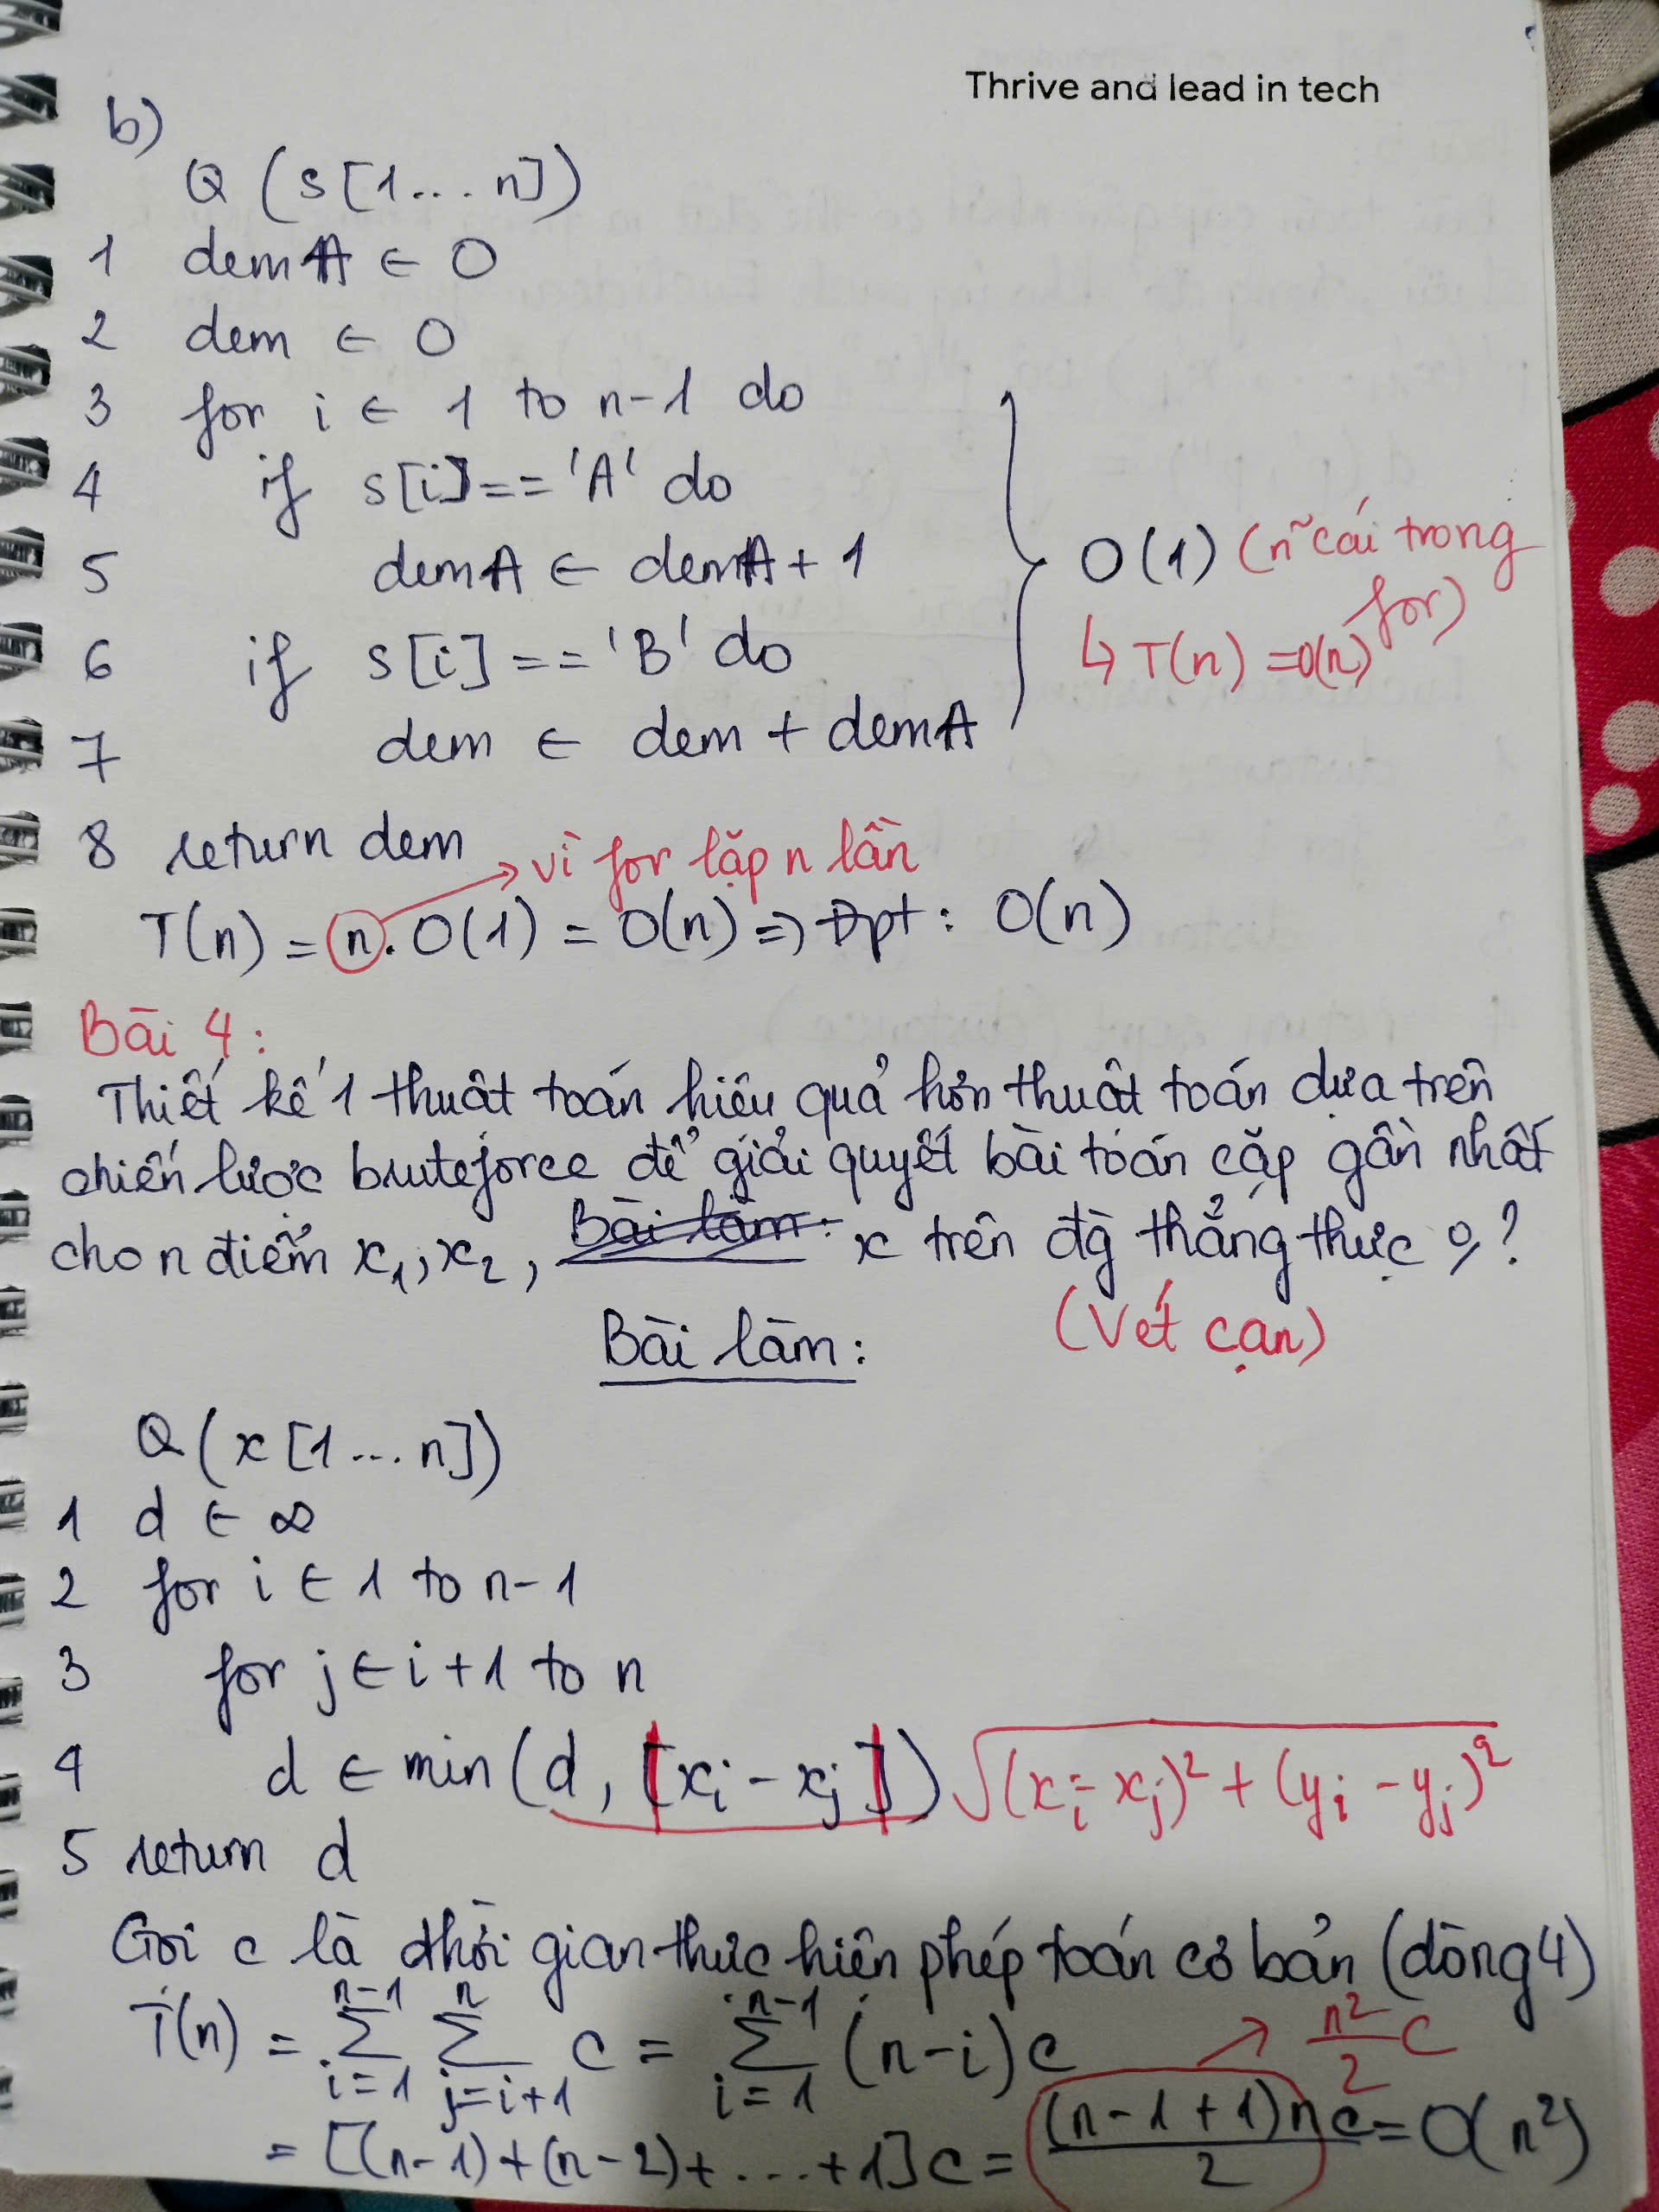 Thrive and lead in tech
b)
Q (s[1... n])
1 demA ← 0
2 dem ← 0
3 for i ← 1 to n-1 do
4 if s[i] == 'A' do
5 demA ← demA + 1
6 if s[i] == 'B' do
7 dem ← dem + demA
O(1) (n~ cái trong for)
↳ T(n) = O(n)
8 return dem
→ vì for lặp n lần
T(n) = n. O(1) = O(n) => Đpt: O(n)
Bài 4:
Thiết kế 1 thuật toán hiệu quả hơn thuật toán dựa trên
chiến lược bruteforce để giải quyết bài toán cặp gần nhất
cho n điểm x₁, x₂, Bài làm: x trên đg thẳng thực ?
(Vét cạn)
Bài làm:
Q(x[1... n])
1 d ← ∞
2 for i ← 1 to n-1
3 for j ← i+1 to n
4 d ← min(d, |xᵢ - xⱼ|) √(xᵢ - xⱼ)² + (yᵢ - yⱼ)²
5 return d
Gọi c là thời gian thực hiện phép toán cơ bản (dòng 4)
T(n) = ∑_{i=1}^{n-1} ∑_{j=i+1}^{n} c = ∑_{i=1}^{n-1} (n-i)c → n²/2 c
= [(n-1)+(n-2)+...+1]c = (n-1+1)n/2 c = O(n²)